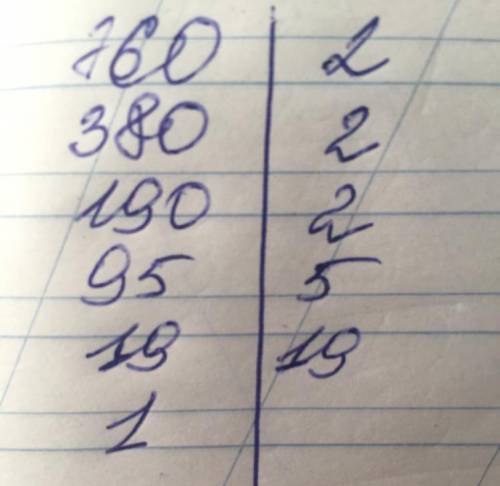 760 2
380 2
190 2
95 5
19 19
1